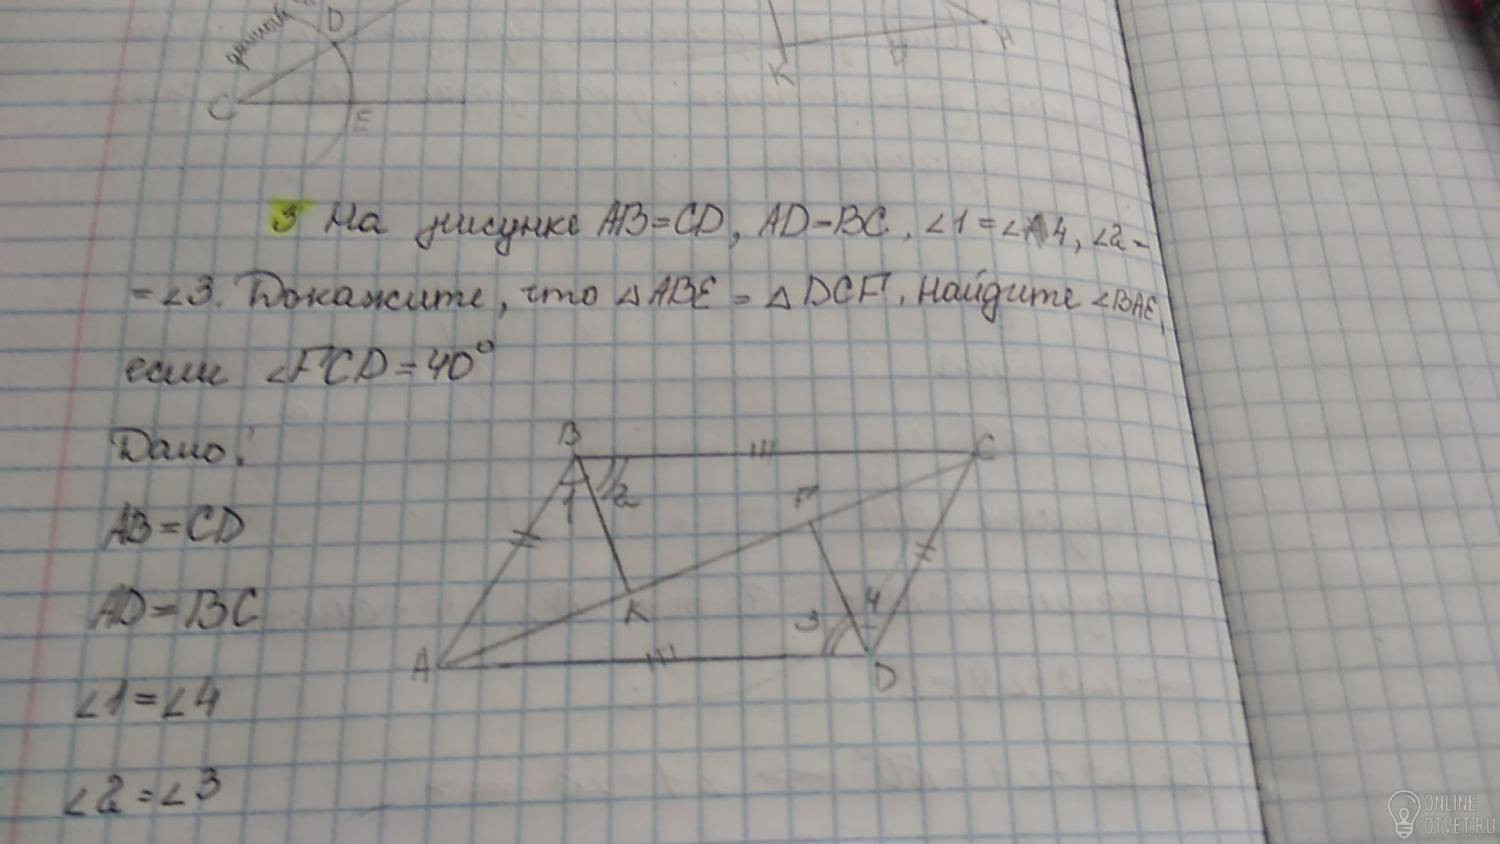 D
C
E
K
3 На рисунке AB=CD, AD=BC, ∠1=∠4, ∠2=
=∠3. Докажите, что △ABE = △DCF. Найдите ∠BAE,
если ∠FCD=40°
Дано:
B
C
1
2
F
AB=CD
K
3
4
AD=BC
A
D
∠1=∠4
∠2=∠3
ONLINE
OTVET.RU